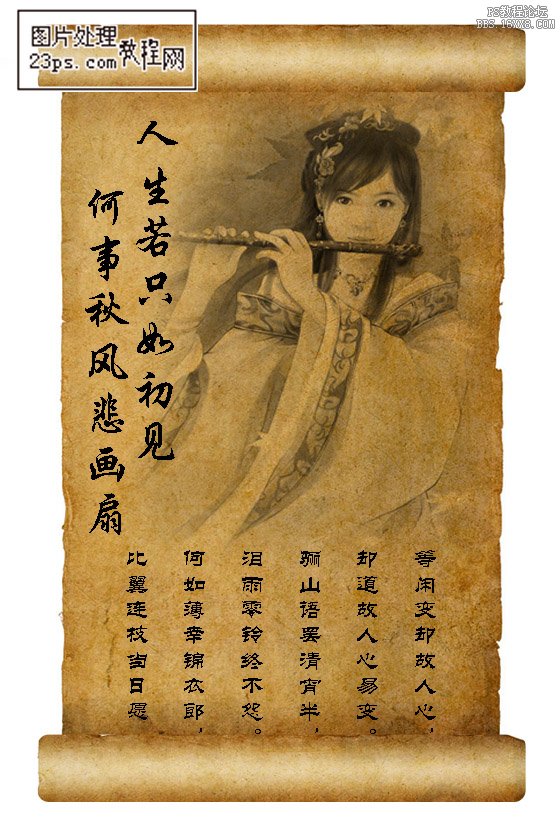 图片处理教程网
23ps.com
PS教程论坛
BBS.16XX8.COM
人生若只如初见
何事秋风悲画扇
等闲变却故人心，
却道故人心易变。
骊山语罢清宵半，
泪雨零铃终不怨。
何如薄幸锦衣郎，
比翼连枝当日愿